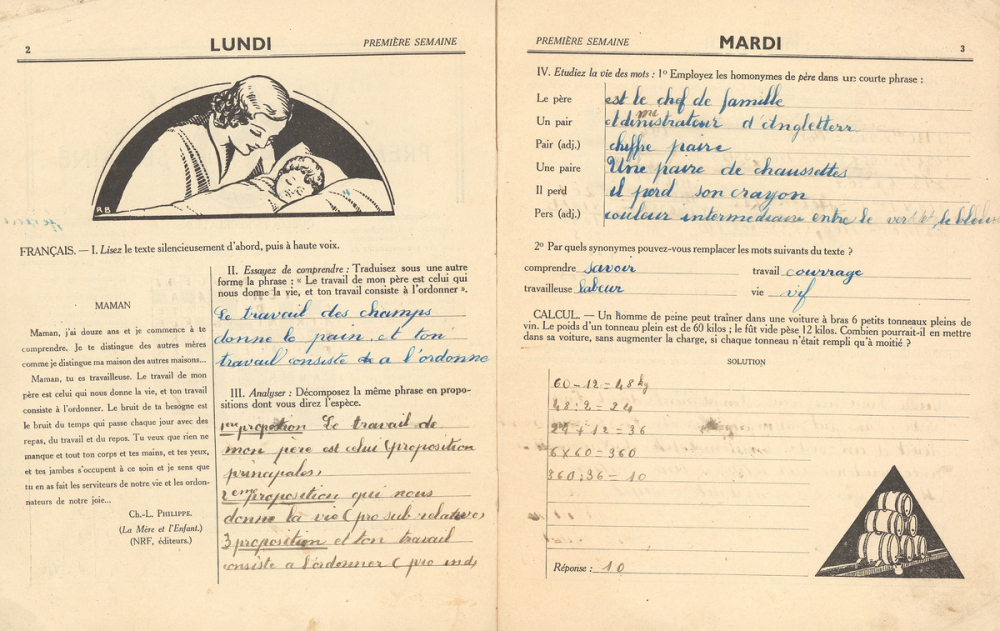 2
LUNDI
PREMIÈRE SEMAINE
RB
FRANÇAIS. — I. Lisez le texte silencieusement d'abord, puis à haute voix.
MAMAN
Maman, j'ai douze ans et je commence à te
comprendre. Je te distingue des autres mères
comme je distingue ma maison des autres maisons...
Maman, tu es travailleuse. Le travail de mon
père est celui qui nous donne la vie, et ton travail
consiste à l'ordonner. Le bruit de ta besogne est
le bruit du temps qui passe chaque jour avec des
repas, du travail et du repos. Tu veux que rien ne
manque et tout ton corps et tes mains, et tes yeux,
et tes jambes s'occupent à ce soin et je sens que
tu en as fait les serviteurs de notre vie et les ordon-
nateurs de notre joie...
CH.-L. PHILIPPE.
(La Mère et l'Enfant.)
(NRF, éditeurs.)
II. Essayez de comprendre : Traduisez sous une autre
forme la phrase : « Le travail de mon père est celui qui
nous donne la vie, et ton travail consiste à l'ordonner ».
Le travail des champs
donne le pain et ton
travail consiste a l'ordonne
III. Analyser : Décomposez la même phrase en propo-
sitions dont vous direz l'espèce.
1ere propostion Le travail de
mon père est celui (proposition
principales)
2eme Proposition qui nous
donne la vie (pro sub relative)
3 proposition et ton travail
consiste a l'ordonner (pro ind)
PREMIÈRE SEMAINE
MARDI
3
IV. Etudiez la vie des mots : 1º Employez les homonymes de père dans une courte phrase :
Le père est le chef de famille
Un pair administrateur d'Angleterr
Pair (adj.) chiffre paire
Une paire Une paire de chaussettes
Il perd il perd son crayon
Pers (adj.) couleur intermediaire entre le vert et le bleu
2º Par quels synonymes pouvez-vous remplacer les mots suivants du texte ?
comprendre savoir travail courrage
travailleuse labeur vie vif
CALCUL. — Un homme de peine peut traîner dans une voiture à bras 6 petits tonneaux pleins de
vin. Le poids d'un tonneau plein est de 60 kilos ; le fût vide pèse 12 kilos. Combien pourrait-il en mettre
dans sa voiture, sans augmenter la charge, si chaque tonneau n'était rempli qu'à moitié ?
SOLUTION
60 - 12 = 48 kg
48 : 2 = 24
24 + 12 = 36
6 x 60 = 360
360 : 36 = 10
Réponse : 10